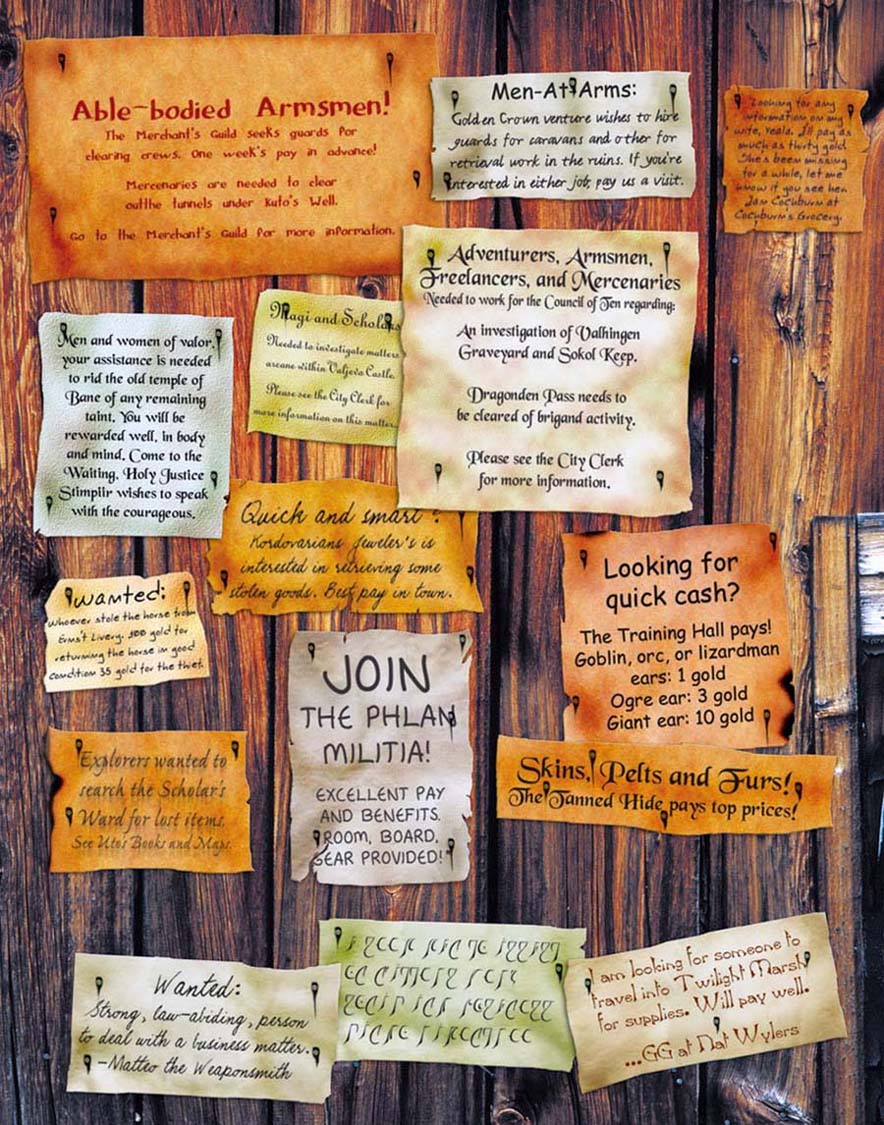 Able-bodied Armsmen!
The Merchant's Guild seeks guards for
clearing crews. One week's pay in advance!
Mercenaries are needed to clear
outthe tunnels under Kuto's Well.
Go to the Merchant's Guild for more information.
Men-At-Arms:
Golden Crown venture wishes to hire
guards for caravans and other for
retrieval work in the ruins. If you're
interested in either job, pay us a visit.
Looking for any
information on my
wife, I'll pay as
much as thirty gold
She's been missing
for a while, let me
know if you see her.
Jan Cockburn at
Cockburns Grocery.
Adventurers, Armsmen,
Freelancers, and Mercenaries
Needed to work for the Council of Ten regarding:
An investigation of Valhingen
Graveyard and Sokol Keep.
Dragonden Pass needs to
be cleared of brigand activity.
Please see the City Clerk
for more information.
Men and women of valor,
your assistance is needed
to rid the old temple of
Bane of any remaining
taint. You will be
rewarded well, in body
and mind. Come to the
Waiting. Holy Justice
Stimpiir wishes to speak
with the courageous.
Magi and Scholars
Needed to investigate matters
arcane within Valjevo Castle.
Please see the City Clerk for
more information on this matter.
Quick and smart?
Kordovarians Jeweler's is
interested in retrieving some
stolen goods. Best pay in town.
Looking for
quick cash?
The Training Hall pays!
Goblin, orc, or lizardman
ears: 1 gold
Ogre ear: 3 gold
Giant ear: 10 gold
Wanted:
Whoever stole the horse from
Ernst Livery. 100 gold for
returning the horse in good
condition 35 gold for the thief.
JOIN
THE PHLAN
MILITIA!
EXCELLENT PAY
AND BENEFITS.
ROOM, BOARD,
GEAR PROVIDED!
Explorers wanted to
search the Scholar's
Ward for lost items.
See Uto's Books and Maps.
Skins, Pelts and Furs!
The Tanned Hide pays top prices!
Wanted:
Strong, law-abiding, person
to deal with a business matter.
-Matteo the Weaponsmith
I am looking for someone to
travel into Twilight Marsh
for supplies. Will pay well.
...GG at Nat Wylers